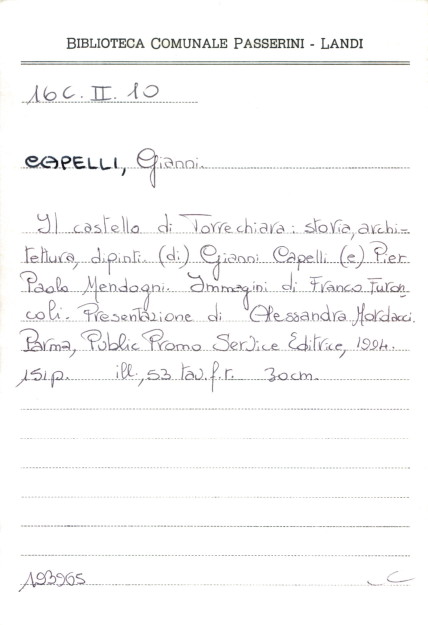 BIBLIOTECA COMUNALE PASSERINI - LANDI
16C. II. 10
CAPELLI, Gianni.
Il castello di Torrechiara: storia, archi=
tettura, dipinti. (di) Gianni Capelli (e) Pier
Paolo Mendogni. Immagini di Franco Furon
coli. Presentazione di Alessandra Mordacci.
Parma, Public Promo Service Editrice, 1994.
151p. ill., 53 tav.f.t. 30cm.
193965 C